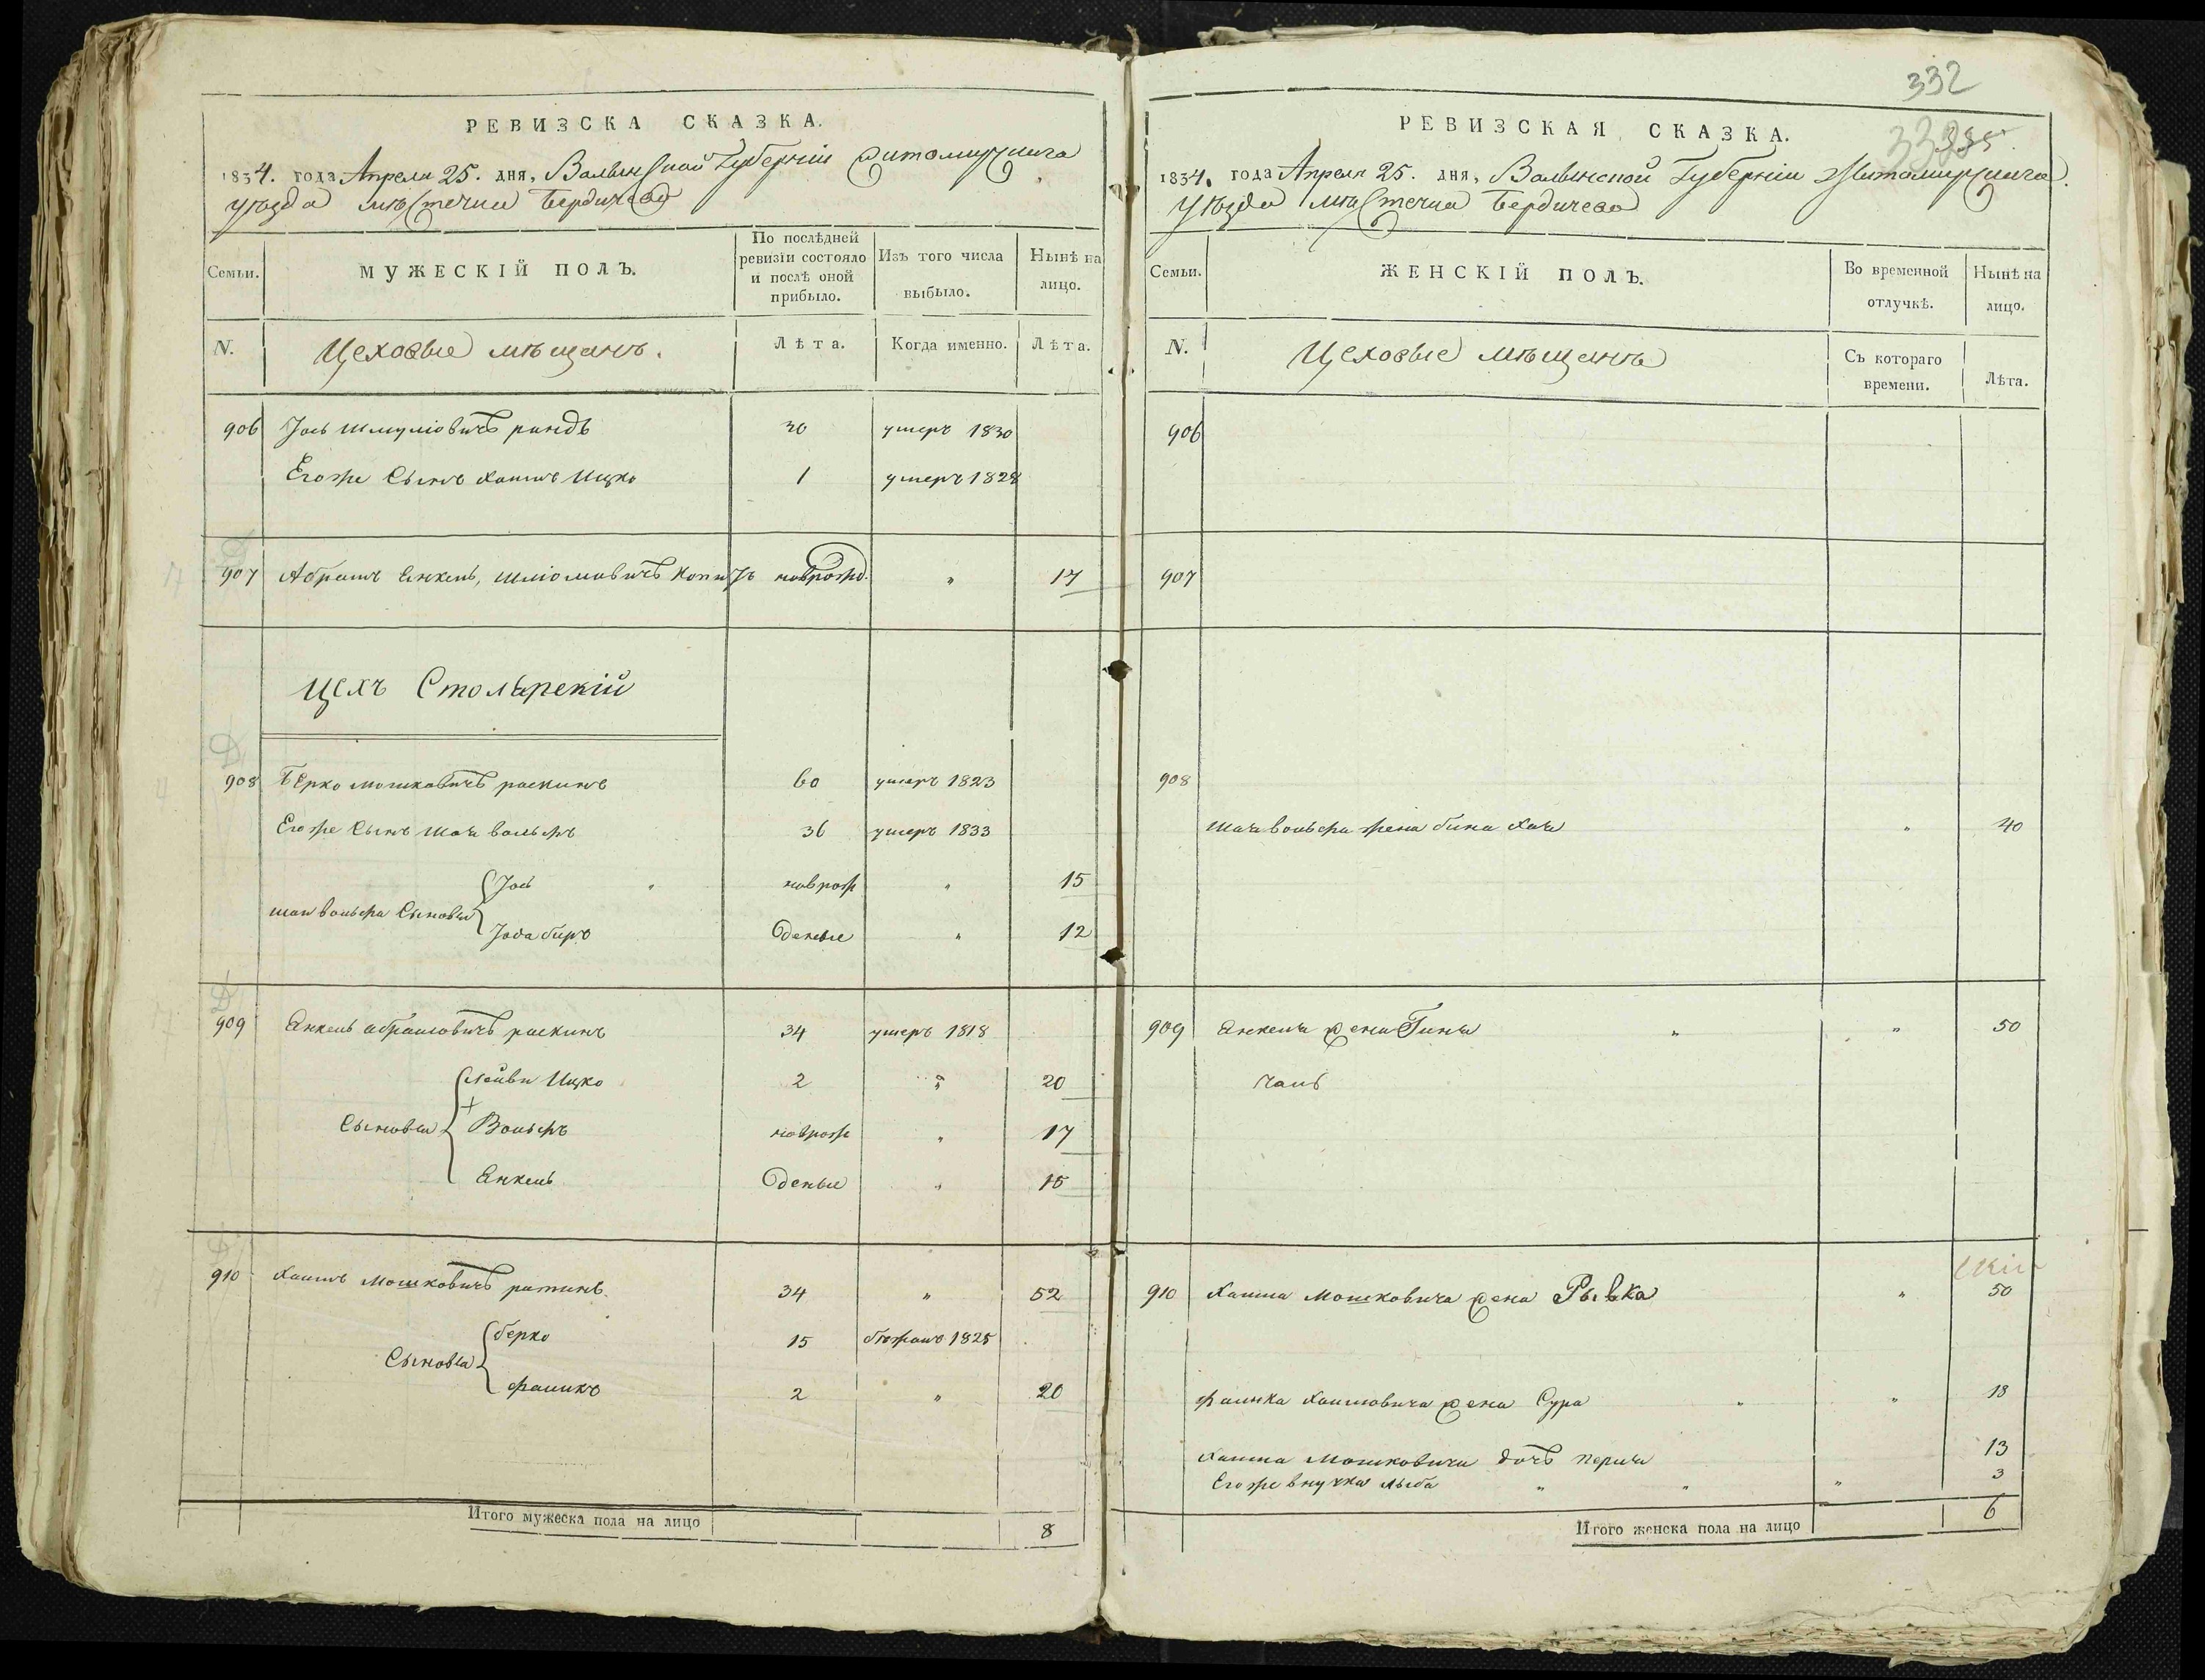 РЕВИЗСКА СКАЗКА.
1834. года Апреля 25. дня, Волынской Губерніи Житомирскаго
уѣзда мѣстечка Бердичева
Семьи.
МУЖЕСКІЙ ПОЛЪ.
По послѣдней ревизіи состояло и послѣ оной прибыло.
Изъ того числа выбыло.
Нынѣ на лицо.
N.
Цеховые мѣщанъ.
Лѣта.
Когда именно.
Лѣта.
906 Іось Шмуліовичъ 30 умеръ 1830
Егоже Сынъ Хаимъ Ицко 1 умеръ 1828
907 Абрамъ Енкель, Шліомовичъ новрожд. " 17
Цехъ Столярскій
908 Берко Мошковичъ раскинъ 60 умеръ 1823
Егоже Сынъ Шая вольфъ 36 умеръ 1833
Іось новрож " 15
шая вольфа Сыновья
12
909 Енкель абрамовичъ раскинъ 34 умеръ 1818
Лейви Ицко 2 " 20
Сыновья Вольфъ новрож " 17
Енкель " 15
910 Хаимъ Мошковичъ 34 " 52
берко 15 бѣжалъ 1825
Сыновья
фаликъ 2 " 20
Итого мужеска пола на лицо 8
332
335
РЕВИЗСКАЯ СКАЗКА.
1834. года Апреля 25. дня, Волынской Губерніи Житомирскаго
Уѣзда мѣстечка Бердичева
Семьи.
ЖЕНСКІЙ ПОЛЪ.
Во временной отлучкѣ.
Нынѣ на лицо.
N.
Цеховые мѣщанъ
Съ котораго времени.
Лѣта.
906
907
908
Шая вольфа жена бина хая " 40
909 Енкеля жена Гиня " " 50
910 Хаима Мошковича жена Рывка " 50
фалика Хаимовича жена Сура " " 18
Хаима Мошковича дочь перля 13
Егоже внучка " " " 3
Итого женска пола на лицо 6